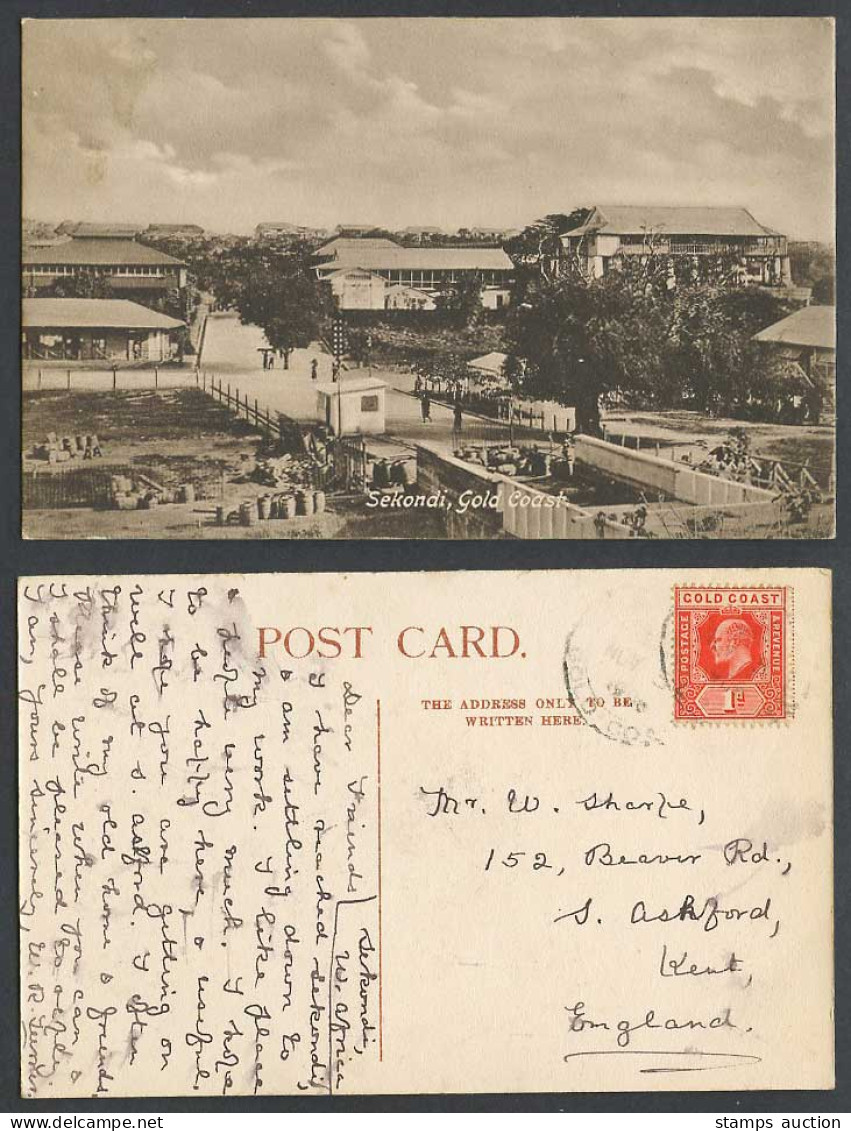 Sekondi, Gold Coast
POST CARD.
THE ADDRESS ONLY TO BE
WRITTEN HERE.
GOLD COAST
POSTAGE
&REVENUE
1d
Sekondi,
W. Africa
Dear Frainds
I have reached Sekondi,
& am settling down to
my work. I like place
& people very much. I hope
to be happy here, & useful.
I hope you are getting on
well at S. Ashford. I often
think of my old home & friends.
Please write when you can &
I shall be pleased to reply.
I am, yours sincerely, W. R.
Mr. W. Sharpe,
152, Beaver Rd.,
S. Ashford,
Kent,
England.
stamps auction